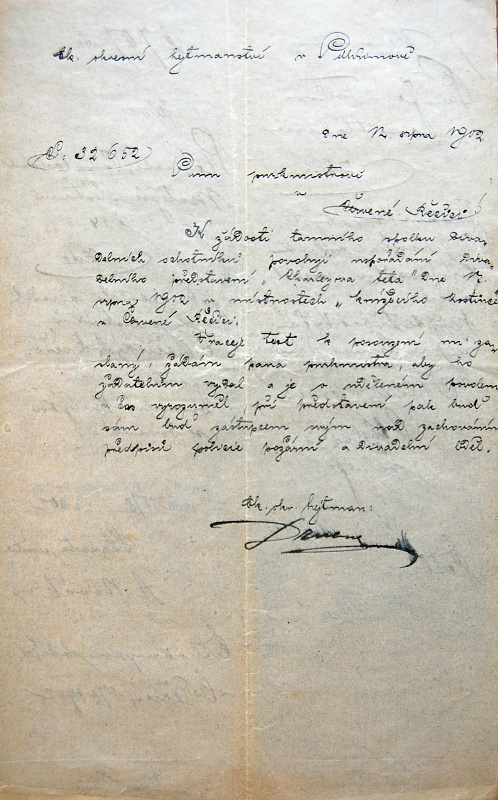 Ck. okresní hejtmanství v Pelhřimově
Dne 12. srpna 1902
Č: 32652
Panu purkmistrovi
v
Červené Řečici
K žádosti tamního spolku diva-
delních ochotníků povoluji uspořádání diva-
delního představení „Charleyova teta" dne 17.
srpna 1902 v místnostech „knížecího hostince"
v Červené Řečici.
Vraceje text k posouzení mi za-
slaný, žádám pana purkmistra, aby ho
žadatelům vydal a je o uděleném povolení
čas vyrozuměl, při představení pak buď
sám buď zástupcem svým nad zachováním
předpisů policie požární a divadelní bděl.
Ck. okr. hejtman: